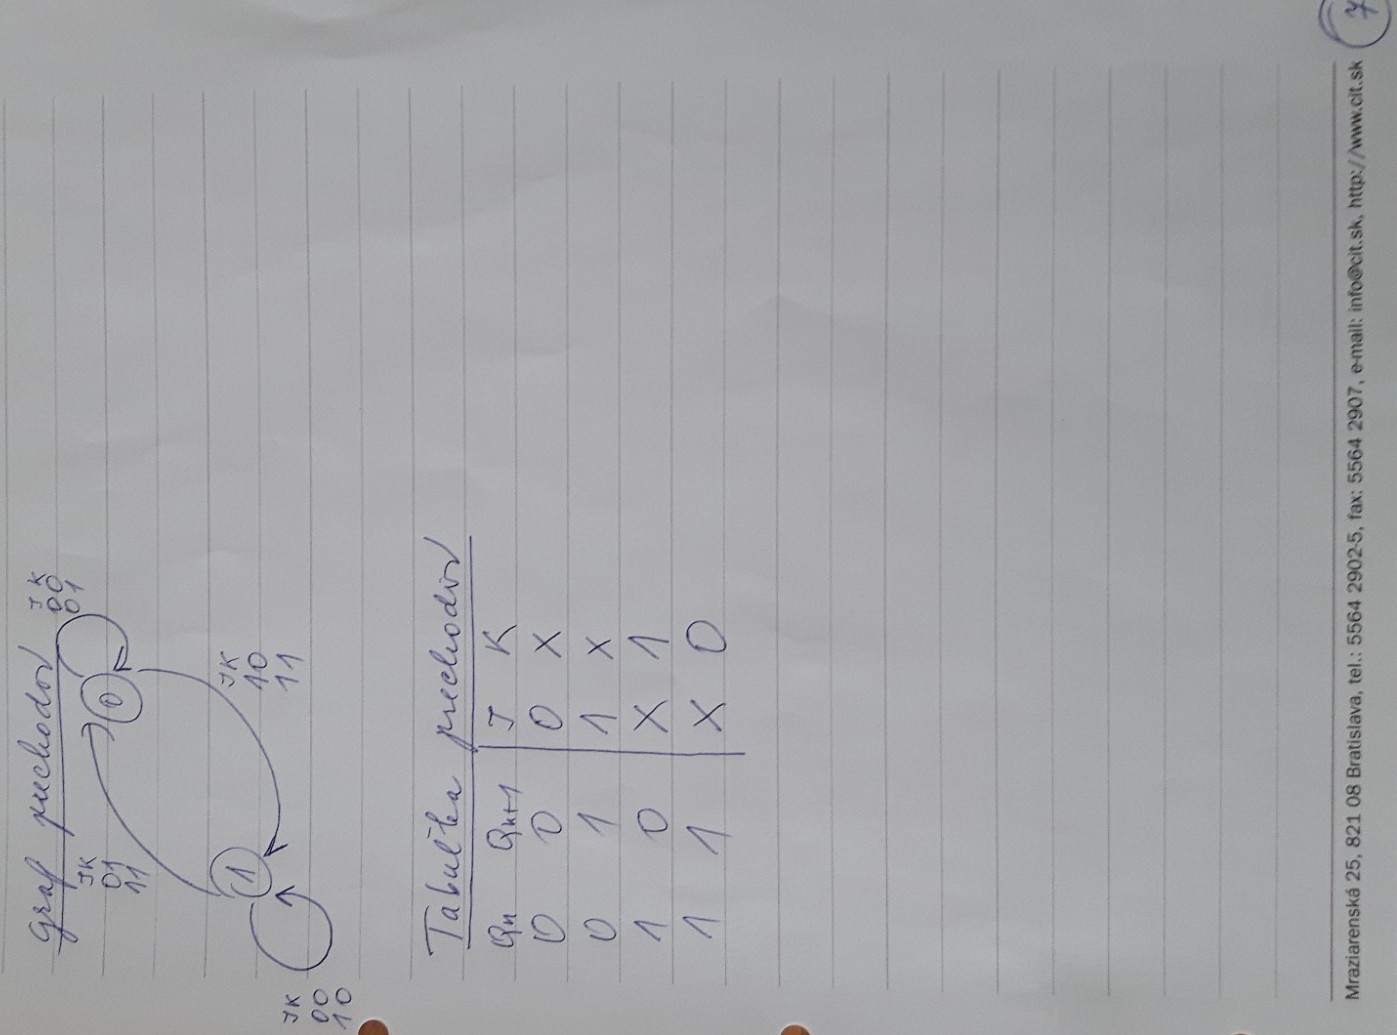 Graf prechodov
J K
00
01
JK
01
11
0
1
JK
10
11
JK
00
10
Tabuľka prechodov
Qn Qn+1 J K
0 0 0 X
0 1 1 X
1 0 X 1
1 1 X 0
Mraziarenská 25, 821 08 Bratislava, tel.: 5564 2902-5, fax: 5564 2907, e-mail: info@cit.sk, http://www.cit.sk
7